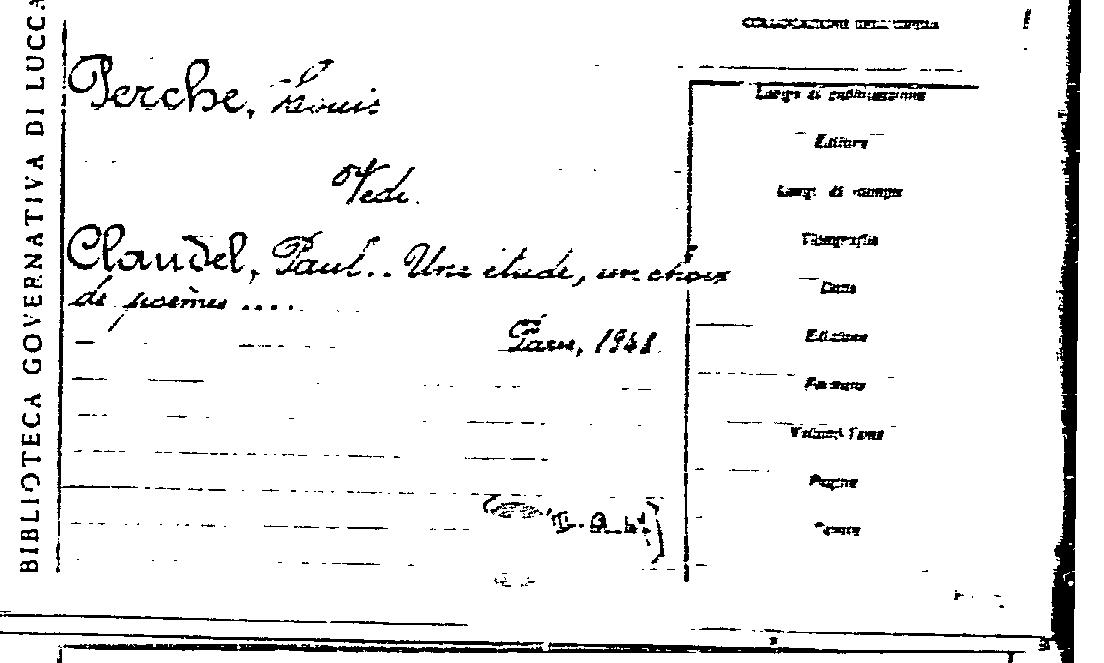 BIBLIOTECA GOVERNATIVA DI LUCCA
COLLOCAZIONE DELL'OPERA
Perche, Louis
Vedi.
Claudel, Paul.. Une étude, un choix
de poèmes ....
Paris, 1948
Luogo di pubblicazione
Editore
Luogo di stampa
Tipografia
Data
Edizione
Formato
Volumi Tomi
Pagine